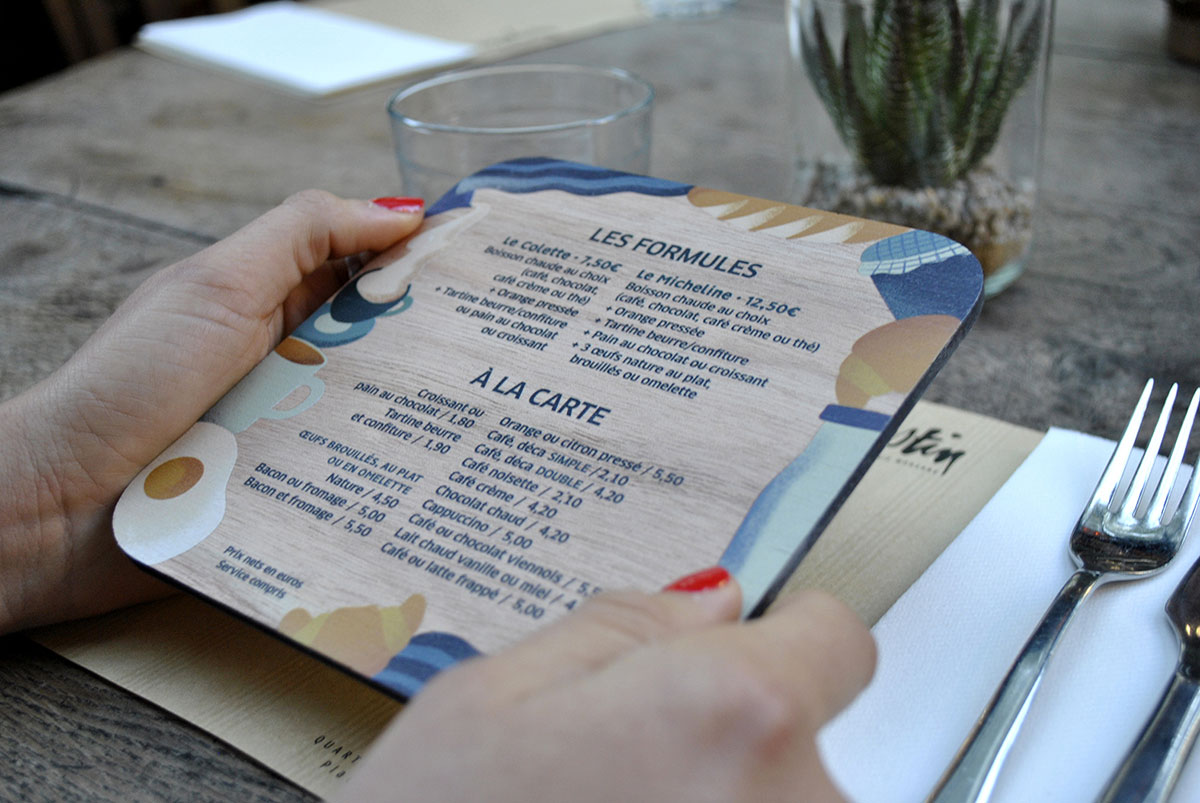 LES FORMULES
Le Colette • 7,50€
Boisson chaude au choix
(café, chocolat,
café crème ou thé)
+ Orange pressée
+ Tartine beurre/confiture
ou pain au chocolat
ou croissant
Le Micheline • 12,50€
Boisson chaude au choix
(café, chocolat, café crème ou thé)
+ Orange pressée
+ Tartine beurre/confiture
+ Pain au chocolat ou croissant
+ 3 œufs nature au plat,
brouillés ou omelette
À LA CARTE
Croissant ou
pain au chocolat / 1,80
Tartine beurre
et confiture / 1,90
ŒUFS BROUILLÉS, AU PLAT
OU EN OMELETTE
Nature / 4,50
Bacon ou fromage / 5,00
Bacon et fromage / 5,50
Orange ou citron pressé / 5,50
Café, déca SIMPLE / 2,10
Café, déca DOUBLE / 4,20
Café noisette / 2,10
Café crème / 4,20
Chocolat chaud / 4,20
Cappuccino / 5,00
Café ou chocolat viennois / 5,5
Lait chaud vanille ou miel / 4
Café ou latte frappé / 5,00
Prix nets en euros
Service compris
QUART
Pla